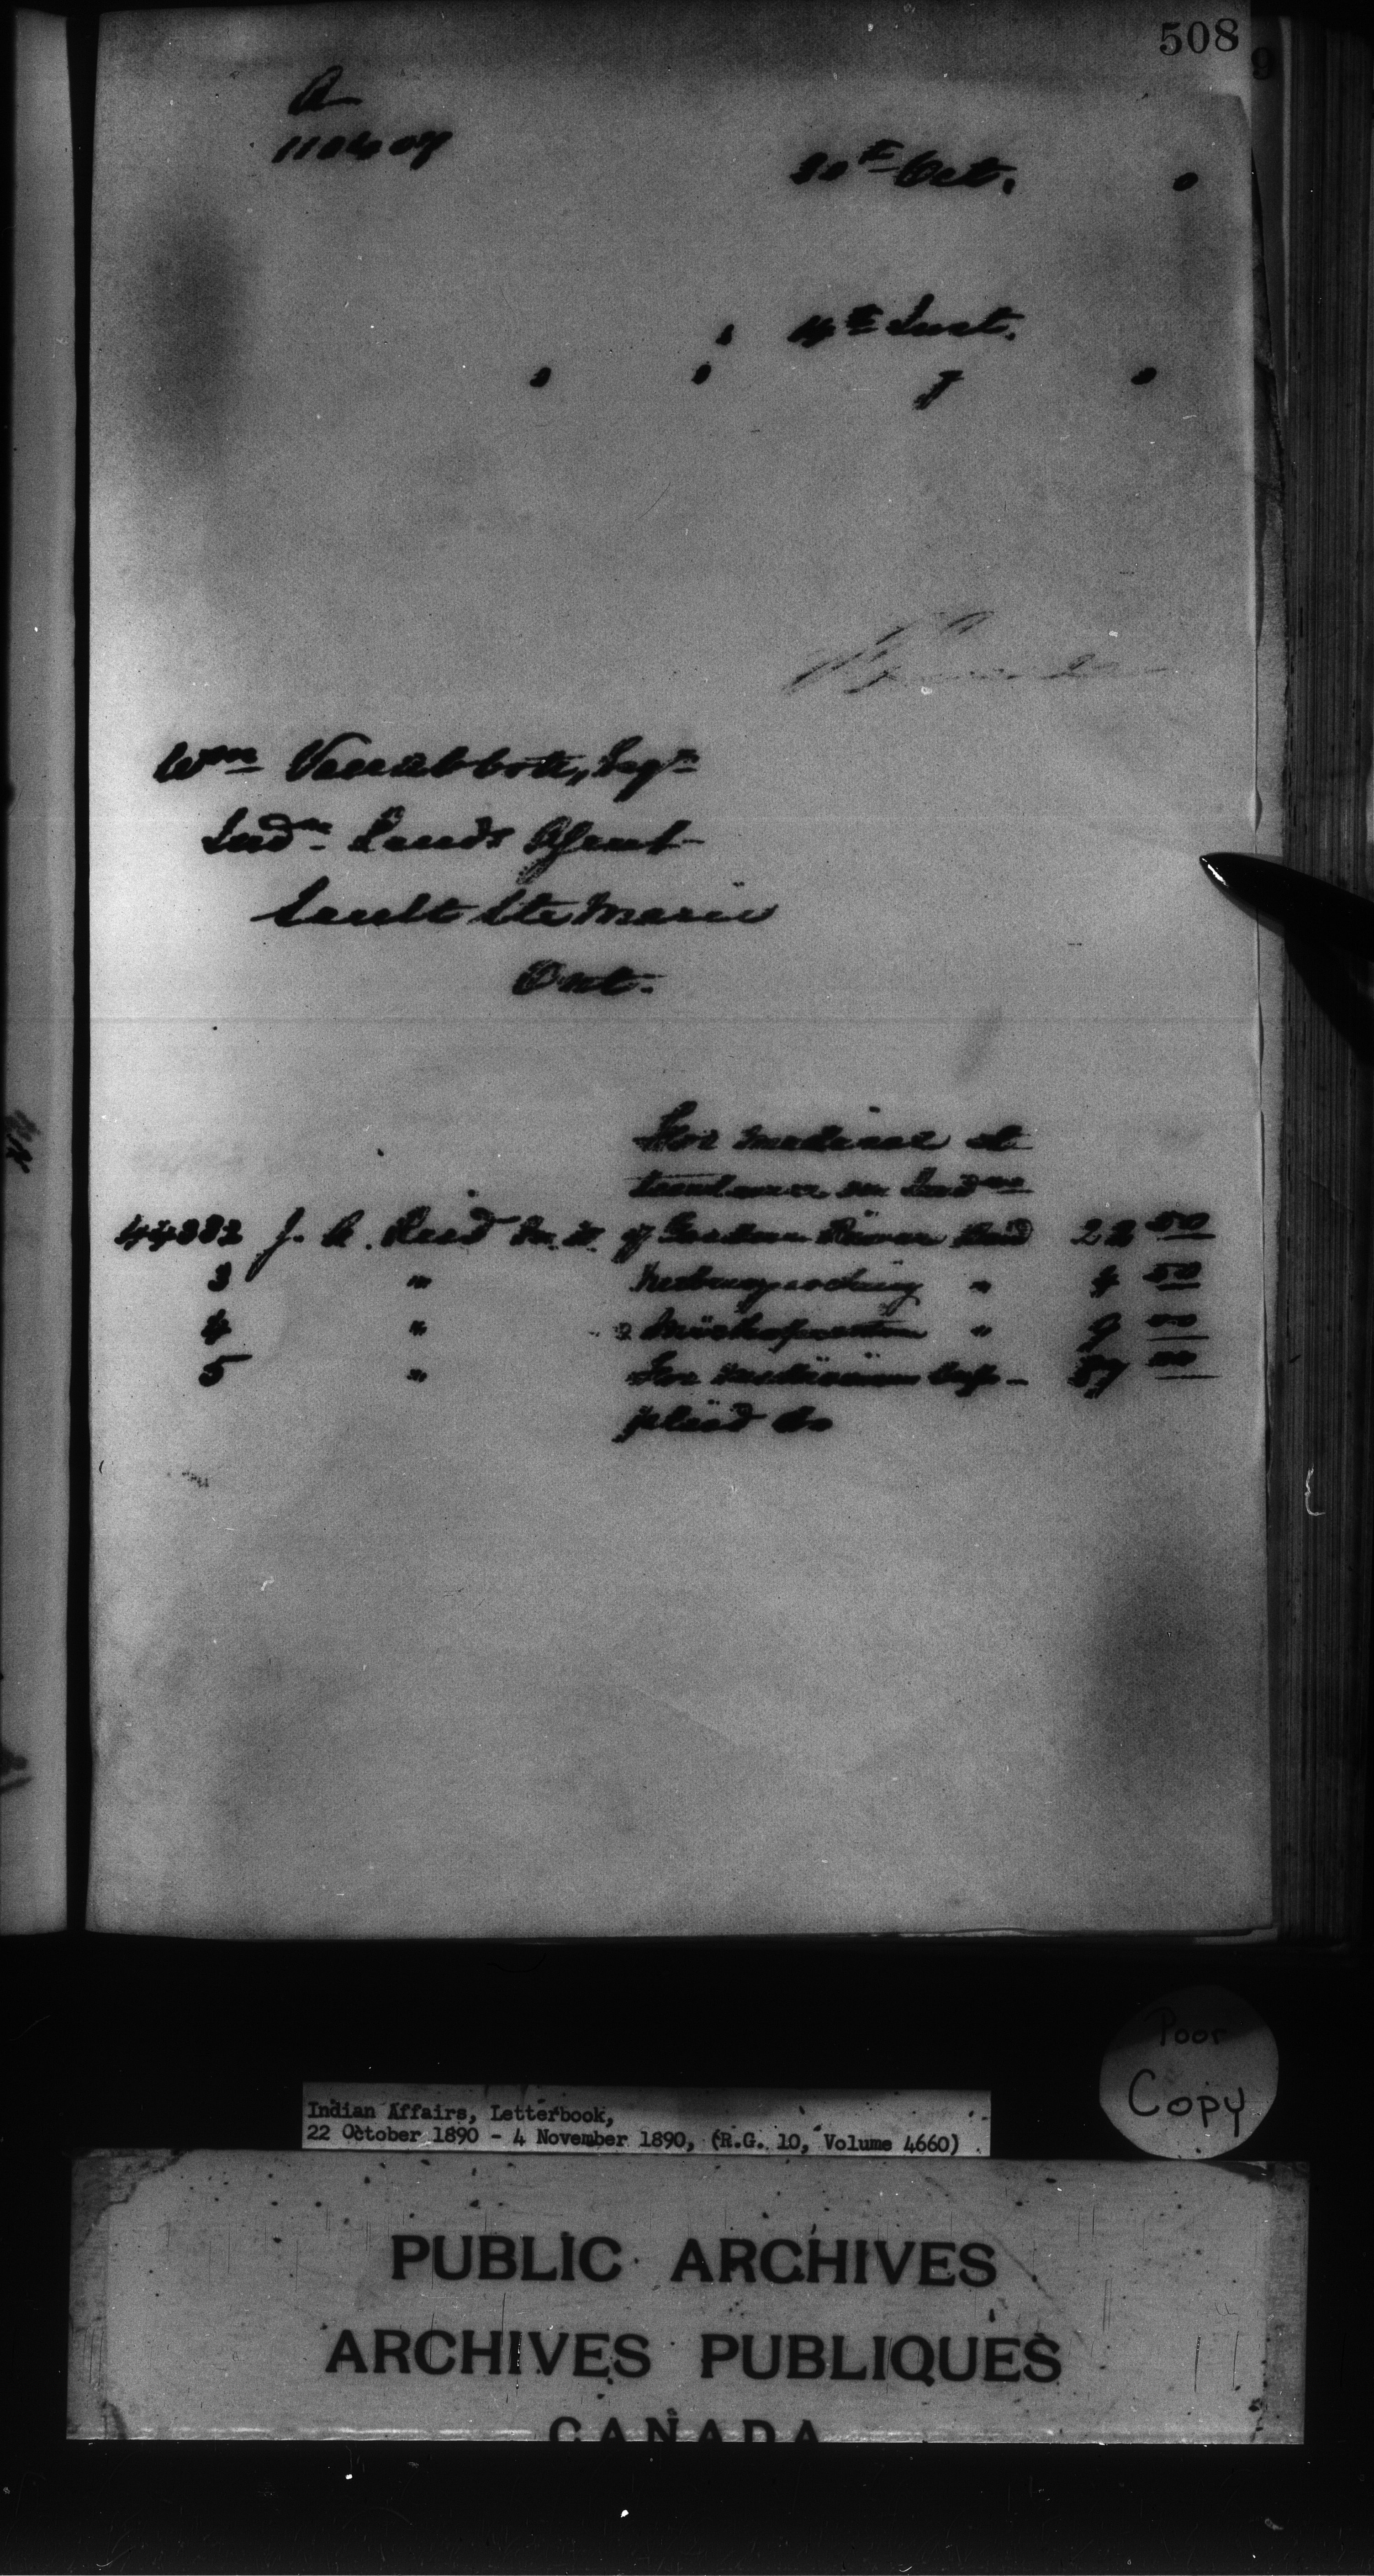 508
9
A
110407
30th Oct. 0
, 4th Inst.
Wm Vanabbott, Esqr
Indn Lands Agent
Sault Ste Marie
Ont.
For medical at
tendance on Indns
44382 J. A. Reed M.D. of Garden River Band 22 50
3 " " 4 50
4 " Michipicoten " 9 00
5 " For medicines sup- 57 00
plied do
Poor
Copy
Indian Affairs, Letterbook,
22 October 1890 - 4 November 1890, (R.G. 10, Volume 4660)
PUBLIC ARCHIVES
ARCHIVES PUBLIQUES
CANADA